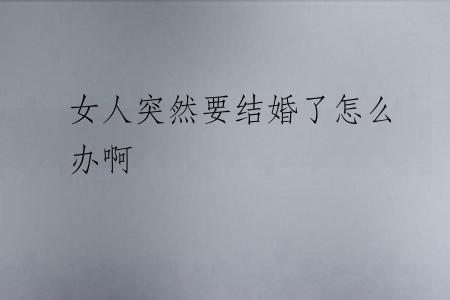 女人突然要结婚了怎么
办啊